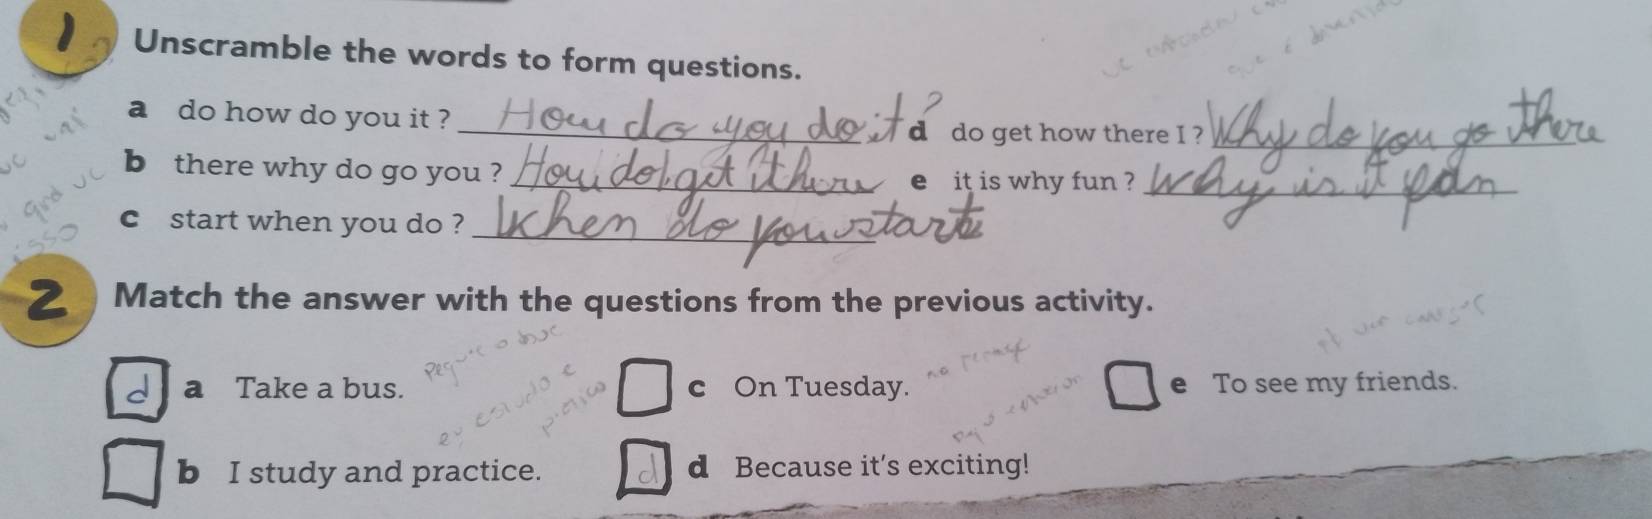 1 Unscramble the words to form questions.
a do how do you it ? How do you do it?
b there why do go you ? How do I get there
c start when you do ? When do you start
d do get how there I ? Why do you go there
e it is why fun ? Why is it fun
2 Match the answer with the questions from the previous activity.
d a Take a bus.
c On Tuesday.
e To see my friends.
b I study and practice.
d d Because it's exciting!
Pegue o bus
eu estudo e
pratico